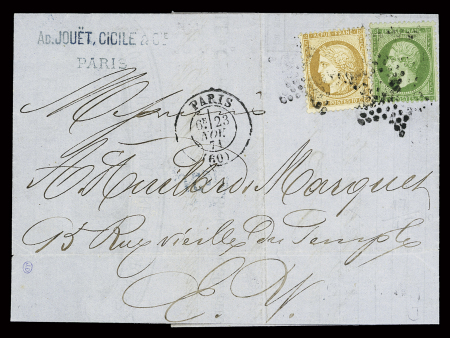 AD. JOUËT, CICILE & CIE
PARIS
REPUB. FRANC.
PARIS
6E 23
NOV.
71
(60)
Messieurs
A. Huillard Marquet
15 Rue vieille du Temple
E. V.